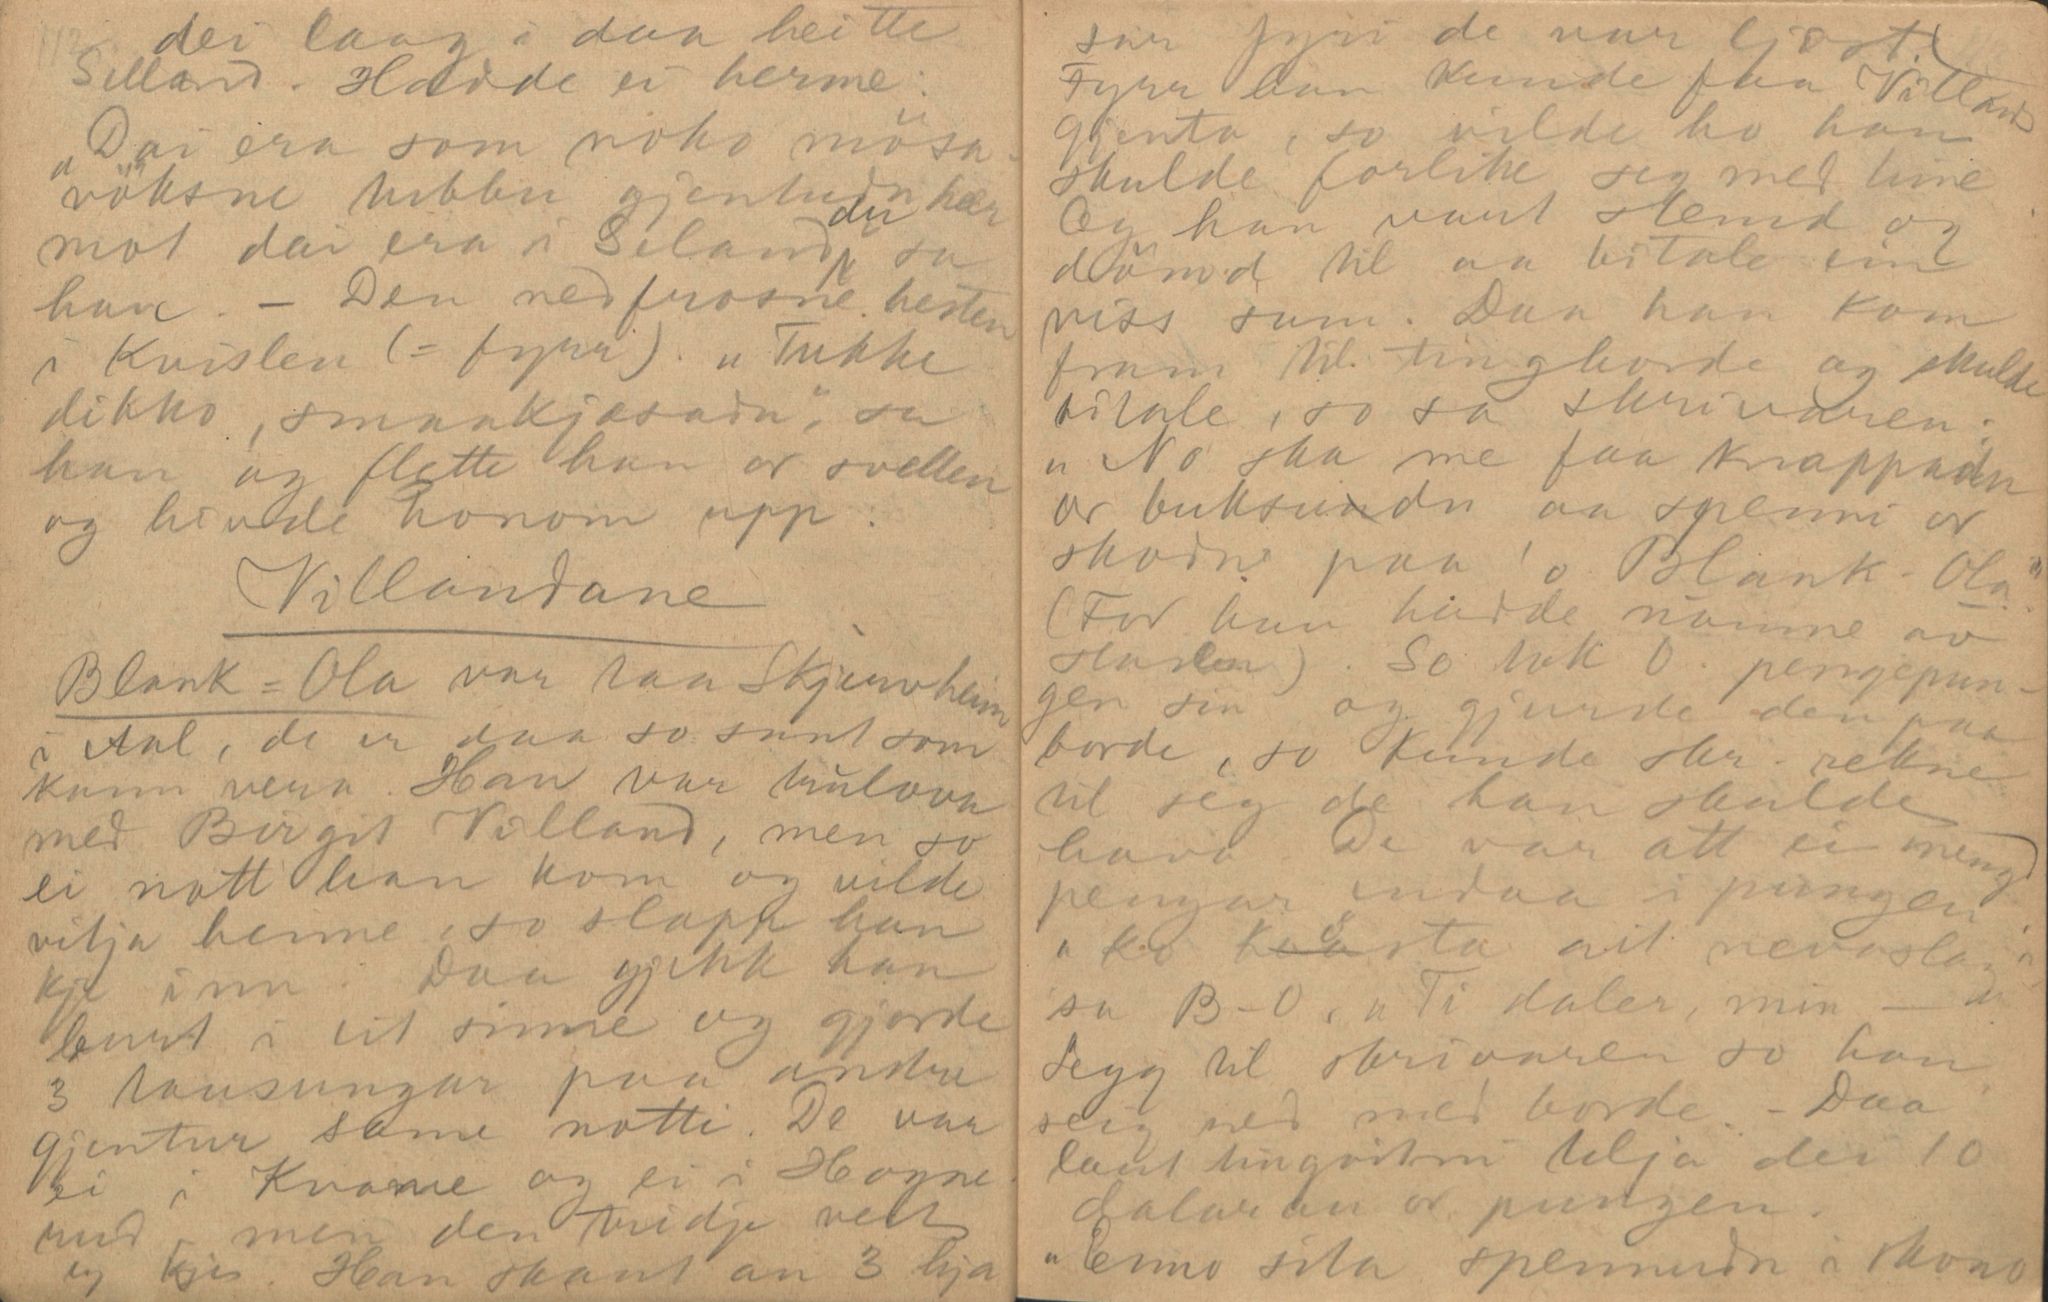 dei laag i daa heitte
Selland. Hadde ei herme:
"Dai era som noko mösa-
vöksne kubbu gjentudn her
mot dai era i Seland du sa
han. – Den nedfrosne hesten
i Kvislen (= fyrr). "Tukke
dikko, smaakjæsadn", sa
han og flette han or svellen
og hivde honom upp.
Villandane
Blank=Ola var taa Skjervheim
i Aal, de er daa so sant som
kann vera. Han var trulova
med Birgit Villand, men so
ei nott han kom og vilde
vitja henne, so slapp han
kje inn. Daa gjekk han
burt i eit sinne og gjorde
3 lausungar paa andre
gjentur same notti. De var
ei i Kvame og ei i Hogne-
rud, men den tridje veit
eg kje. Han skaut au 3 hja
sur fyri de var ljost.
Fyrr han kunde faa Villand
gjenta, so vilde ho han
skulde forlike seg med hine
Og han vart stemd og
dömd til aa bitale ein
viss sum. Daa han kom
fram til tingborde og skulde
bitale, so sa skrivaren:
"No ska me faa knappadn
or buksundn aa spenni or
skodne paa 'o Blank-Ola"
(For han hadde nämne av
stasen). So tok O. pengepun-
gen sin og gjorde den paa
borde, so kunde skr. rekne
til seg de han skulde
hava. De var att ei mengd
pengar endaa i pungen
"Ko kosta eit nevaslag"
sa B-O, "Ti daler, min –"
Segg til skrivaren so han
seig ned med borde. – Daa
laut tingvitni telja dei 10
dalaran or pungen.
"Enno sita spennudn i skono